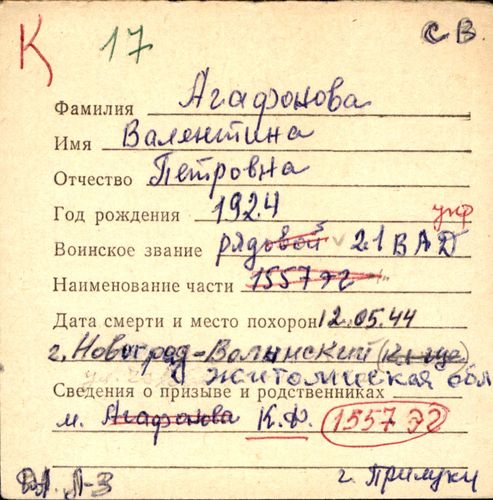 К 17 СВ.
Фамилия Агафонова
Имя Валентина
Отчество Петровна
Год рождения 1924 укр
Воинское звание рядовой 21 ВАД
Наименование части 1557 ЭГ
Дата смерти и место похорон 12.05.44
г. Новоград-Волынский
Житомирская обл
Сведения о призыве и родственниках
м. Агафонова К.Ф. 1557 ЭГ
Л-3 г. Прилуки